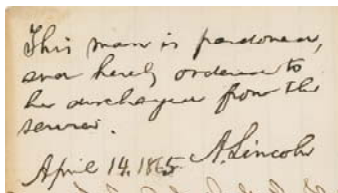 This man is pardoned,
and hereby ordered to
be discharged from the
service.
April 14, 1865 A. Lincoln